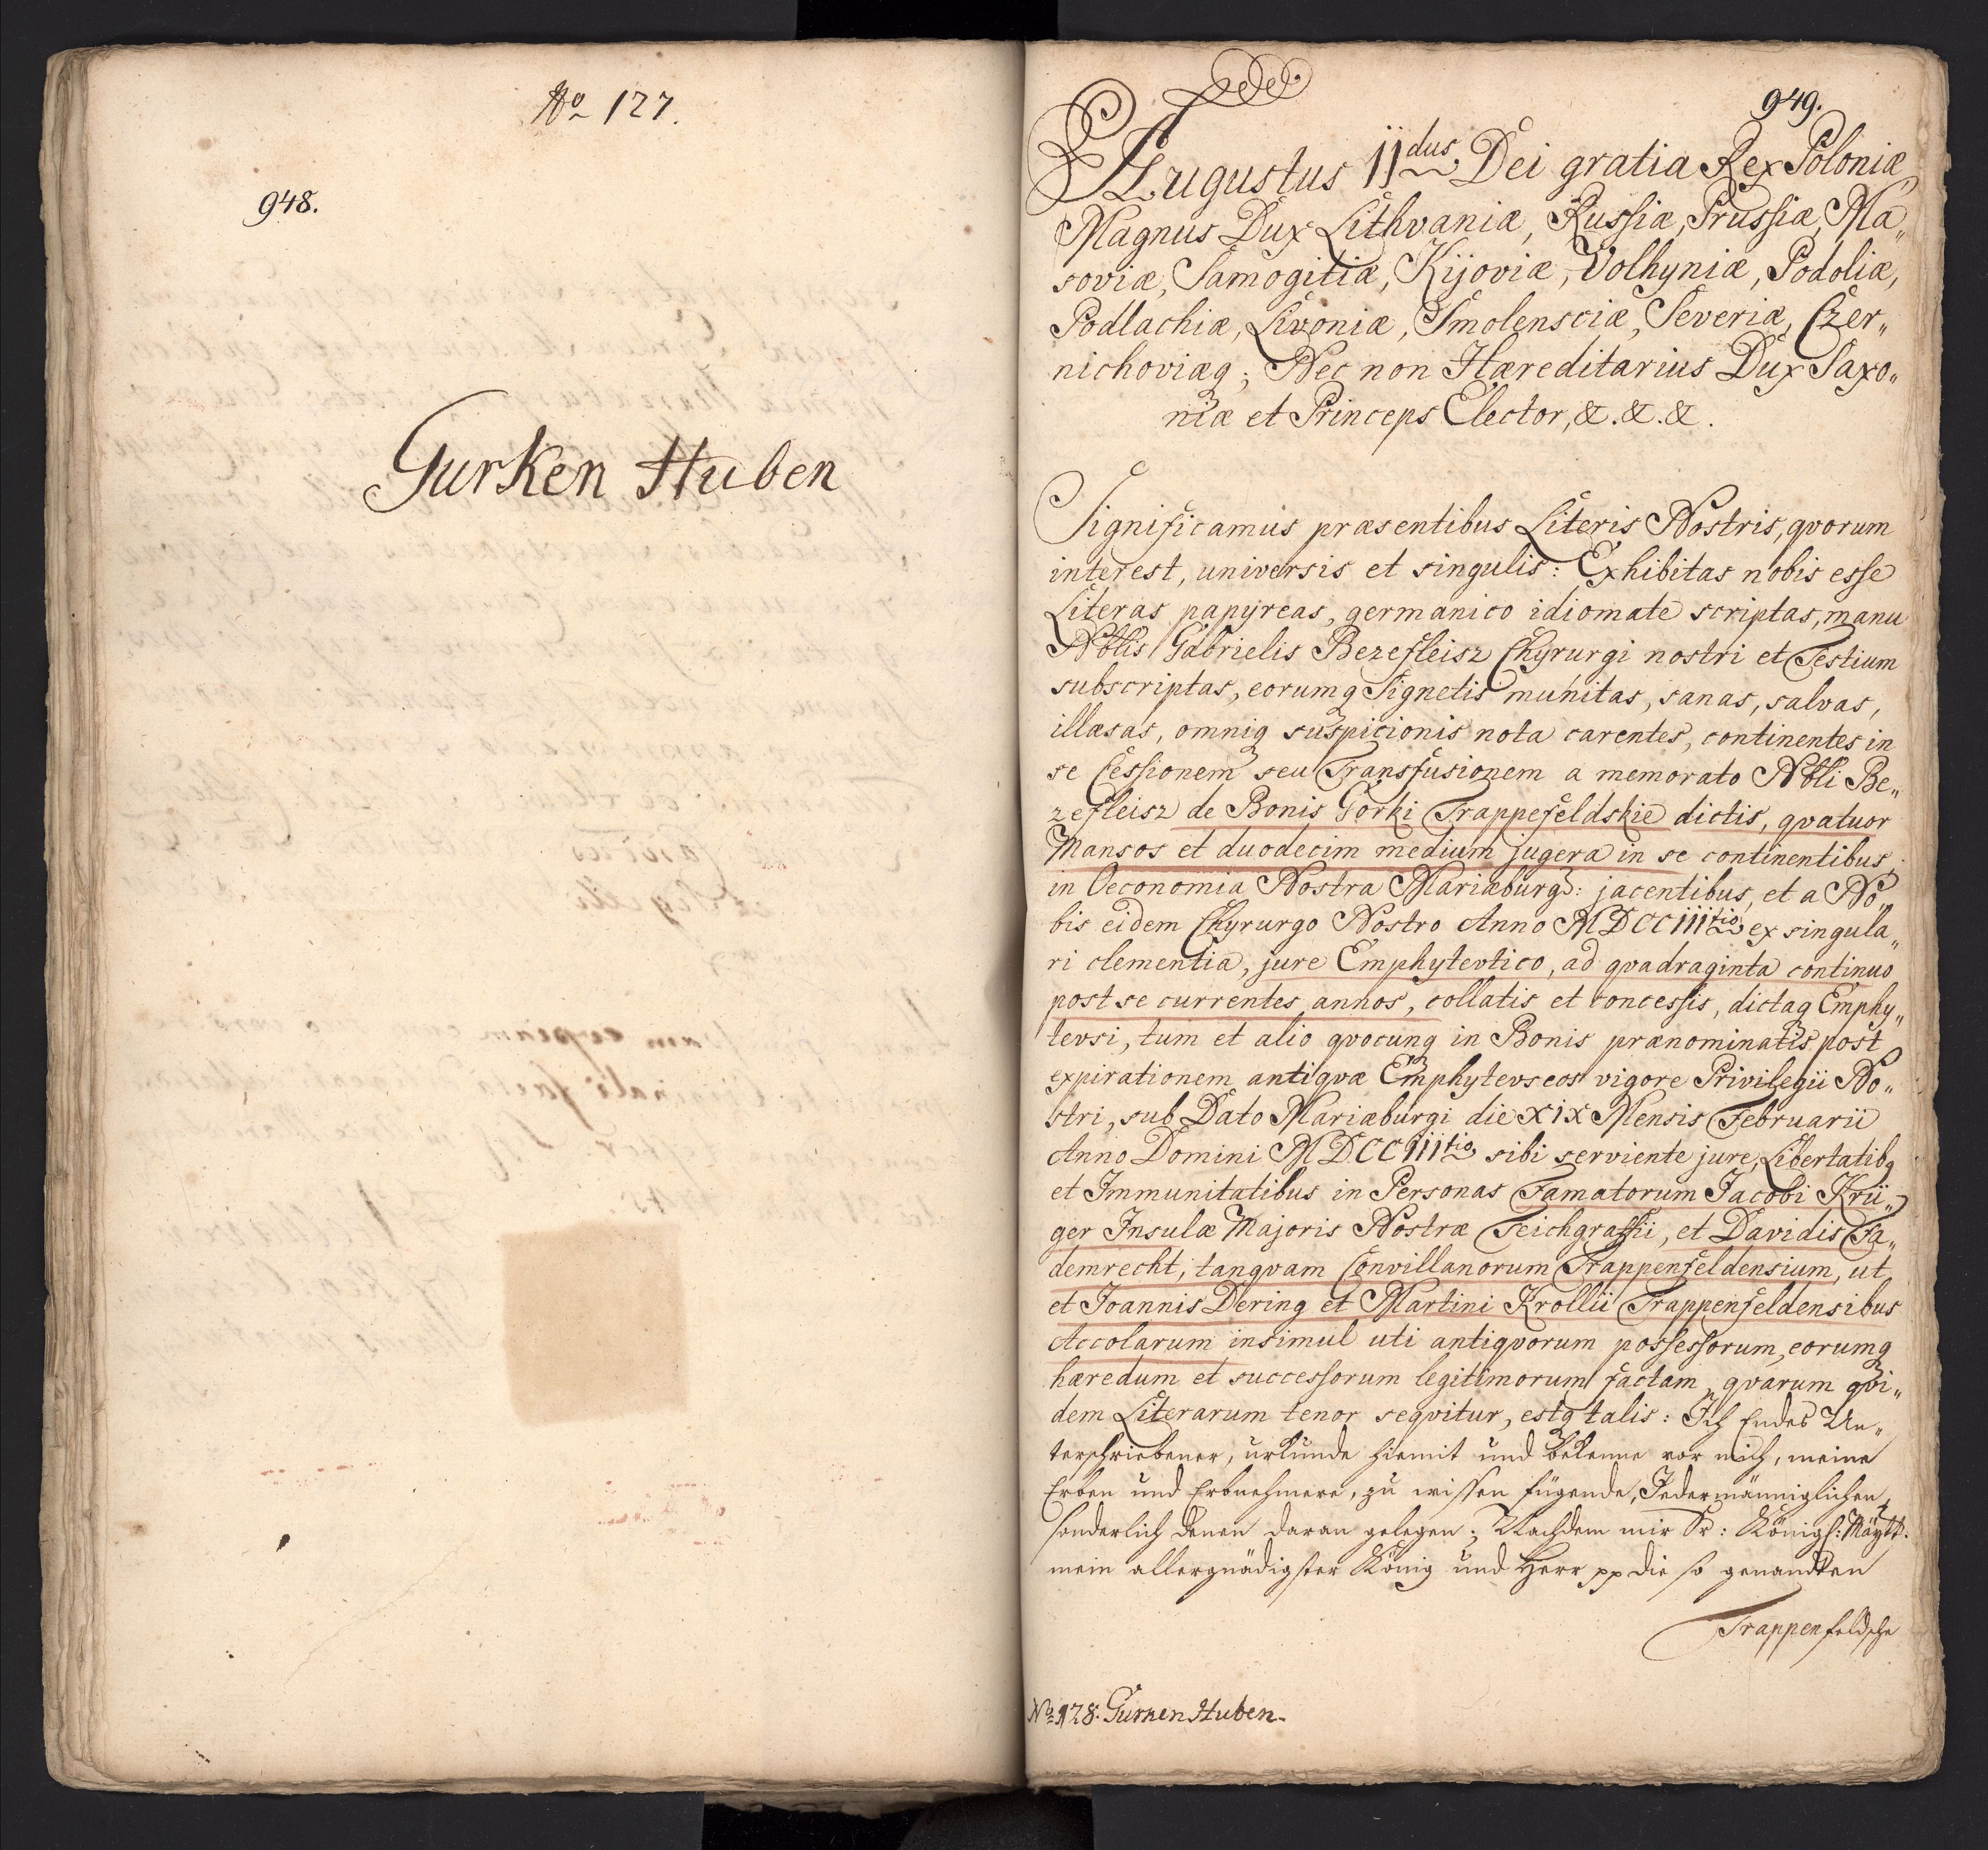 No 127.
948.
Gurken Huben
949.
Augustus IIdus Dei gratia Rex Poloniæ,
Magnus Dux Lithvaniæ, Russiæ, Prussiæ, Ma„
soviæ, Samogitiæ, Kijoviæ, Volhyniæ, Podoliæ,
Podlachiæ, Livoniæ, Smolensciæ, Severiæ, Czer„
nichoviæq; Nec non Hæreditarius Dux Saxo„
niæ et Princeps Elector, &. &. &.
Significamus præsentibus Literis Nostris, qvorum
interest, universis et singulis: Exhibitas nobis esse
Literas papyreas, germanico idiomate scriptas, manu
Noblis Gabrielis Bezefleisz Chyrurgi nostri et Testium
subscriptas, eorumq Signetis munitas, sanas, salvas,
illæsas, omniq suspicionis nota carentes, continentes in
se Cessionem seu Transfusionem a memorato Nobli Be„
zefleisz de Bonis Gorki Trappefeldskie dictis, qvatuor
Mansos et duodecim medium jugera in se continentibus,
in Oeconomia Nostra Mariæburg: jacentibus, et a No„
bis eidem Chyrurgo Nostro Anno MDCCIIItio ex singula„
ri clementia, jure Emphytevtico, ad qvadraginta continuo
post se currentes annos, collatis et concessis, dictaq Emphy„
tevsi, tum et alio qvocunq in Bonis prænominatis post
expirationem antiqvæ Emphytevseos vigore Privilegii No„
stri, sub Dato Mariæburgi die XIX Mensis Februarii
Anno Domini MDCCIIItio sibi serviente jure, Libertatibq
et Immunitatibus in Personas Famatorum Jacobi Krü„
ger Insulæ Majoris Nostræ Teichgraffii, et Davidis Fa„
demrecht, tanqvam Convillanorum Trappenfeldensium, ut
et Joannis Dering et Martini Krollii Trappenfeldensibus
Accolarum insimul uti antiqvorum possessorum, eorumq
hæredum et successorum legitimorum factam, qvarum qvi„
dem Literarum tenor seqvitur, estq talis: Ich Endes Un„
terschriebener, urkunde hiemit und bekenne vor mich, meine
Erben und Erbnehmere, zu wissen fügende, Jedermänniglichen,
sonderlich denen daran gelegen; Nachdem mir Sr: Königl: Mäytt.
mein allergnädigster König und Herr pp die so genandten
Trappenfeldsche
No 128. Gurken Huben.